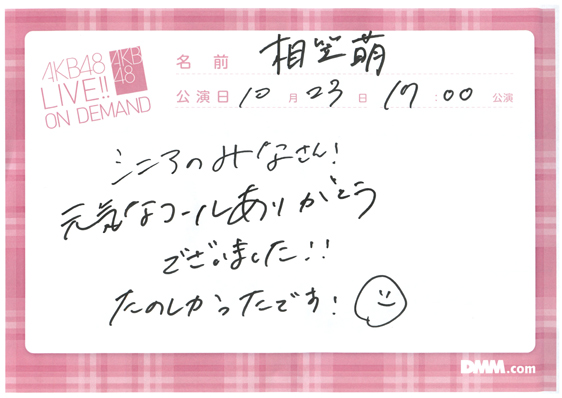 AKB48
LIVE!!
ON DEMAND
AKB
48
名前 相笠萌
公演日 10月23日 17:00公演
シアターのみなさん!
元気なコールありがとう
ございました!!
たのしかったです!
DMM.com